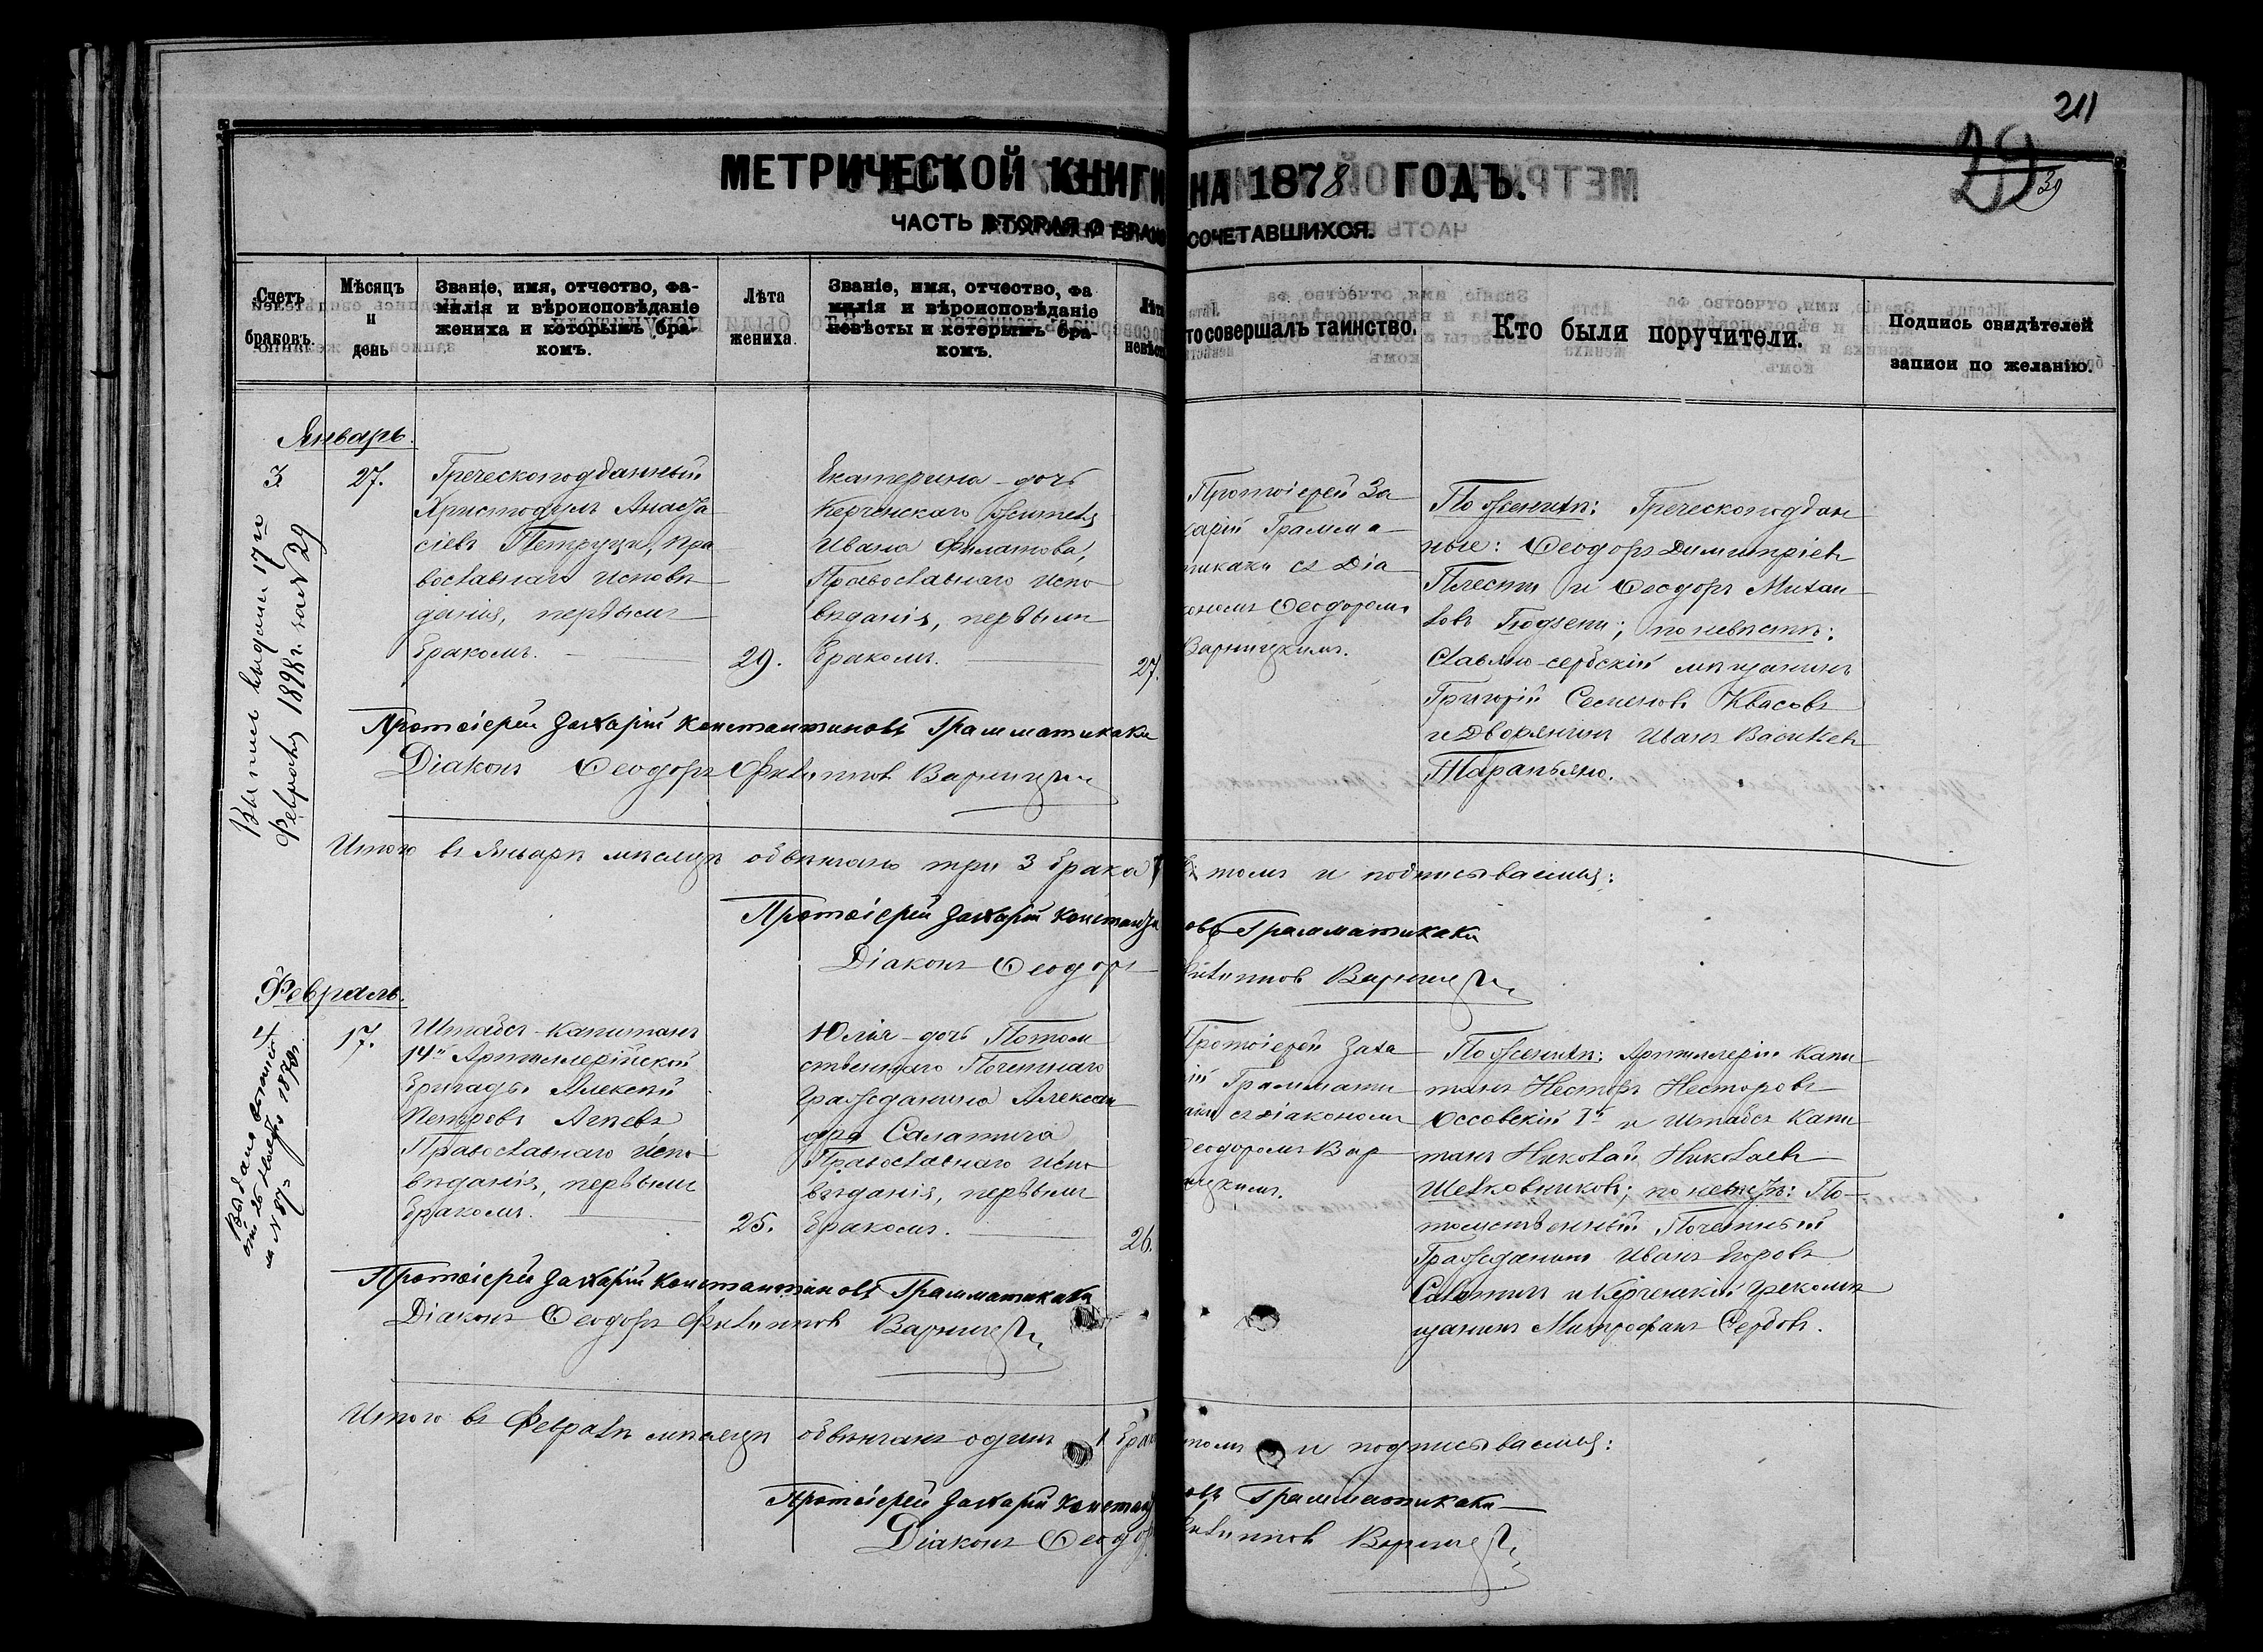 211
29
39
МЕТРИЧЕСКОЙ КНИГИ НА 1878 ГОДЪ.
ЧАСТЬ ВТОРАЯ О БРАКО СОЧЕТАВШИХСЯ.
Счетъ
браковъ.
Мѣсяцъ
и
день
Званіе, имя, отчество, фа-
милія и вѣроисповѣданіе
жениха и которымъ бра-
комъ.
Лѣта
жениха.
Званіе, имя, отчество, фа
милія и вѣроисповѣданіе
невѣсты и которымъ бра-
комъ.
Лѣта
невѣсты
то совершалъ таинство.
Кто были поручители.
Подпись свидѣтелей
записи по желанію.
Январь.
3
27.
Греческоподданный
Христодулъ Анаста
сіевъ Петруци, пра
вославнаго исповѣ
данія, первымъ
бракомъ.
29.
Екатерина - дочь
Керченскаго жителя
Ивана Филатова,
Православнаго испо
вѣданія, первымъ
бракомъ.
27.
Протоіерей За
харій Грамма
тикаки съ Діа
кономъ Ѳеодоромъ
Варницкимъ.
По женихѣ: Греческоподдан
ные: Ѳеодоръ Димитріевъ
и Ѳеодоръ Михаи
ловъ; по невѣстѣ:
Славяно-сербскій мѣщанинъ
Григорій Семеновъ Квасовъ
и Дворянинъ Иванъ Васильевъ
Выпись выдана 17го
Февраля 1898 г. за № 29
Протоіерей Захарій Константиновъ Грамматикаки
Діаконъ Ѳеодоръ Филипповъ Варницкій
Итого въ Январѣ мѣсяцѣ обвѣнчано три 3 брака въ томъ и подписываемся:
Протоіерей Захарій Константиновъ Грамматикаки
Діаконъ Ѳеодоръ Филипповъ Варницкій
Февраль.
4
17.
Штабсъ-Капитанъ
14й Артиллерійской
бригады Алексѣй
Петровъ Агѣевъ
Православнаго испо
вѣданія, первымъ
бракомъ.
25.
Юлія - дочь Потом
ственнаго Почетнаго
Гражданина Алексан
дра Салатича
Православнаго испо
вѣданія, первымъ
бракомъ.
26.
Протоіерей Заха
рій Граммати
каки съ діакономъ
Ѳеодоромъ Вар
ницкимъ.
По женихѣ: Артиллеріи Капи
танъ Несторъ Несторовъ
Оссовскій 1й и Штабсъ Капи
танъ Николай Николаевъ
Шелковниковъ; по невѣстѣ: По-
томственный Почетный
Гражданинъ Иванъ Егоровъ
и Керченскій Грекомѣ
щанинъ Митрофанъ Сербовъ.
Выдана
от 26 Ноября 1878 г.
за № 87
Протоіерей Захарій Константиновъ Грамматикаки
Діаконъ Ѳеодоръ Филипповъ Варницкій
Итого въ Февралѣ мѣсяцѣ обвѣнчанъ одинъ 1 бракъ томъ и подписываемся:
Протоіерей Захарій Константиновъ Грамматикаки
Діаконъ Ѳеодоръ Филипповъ Варницкій